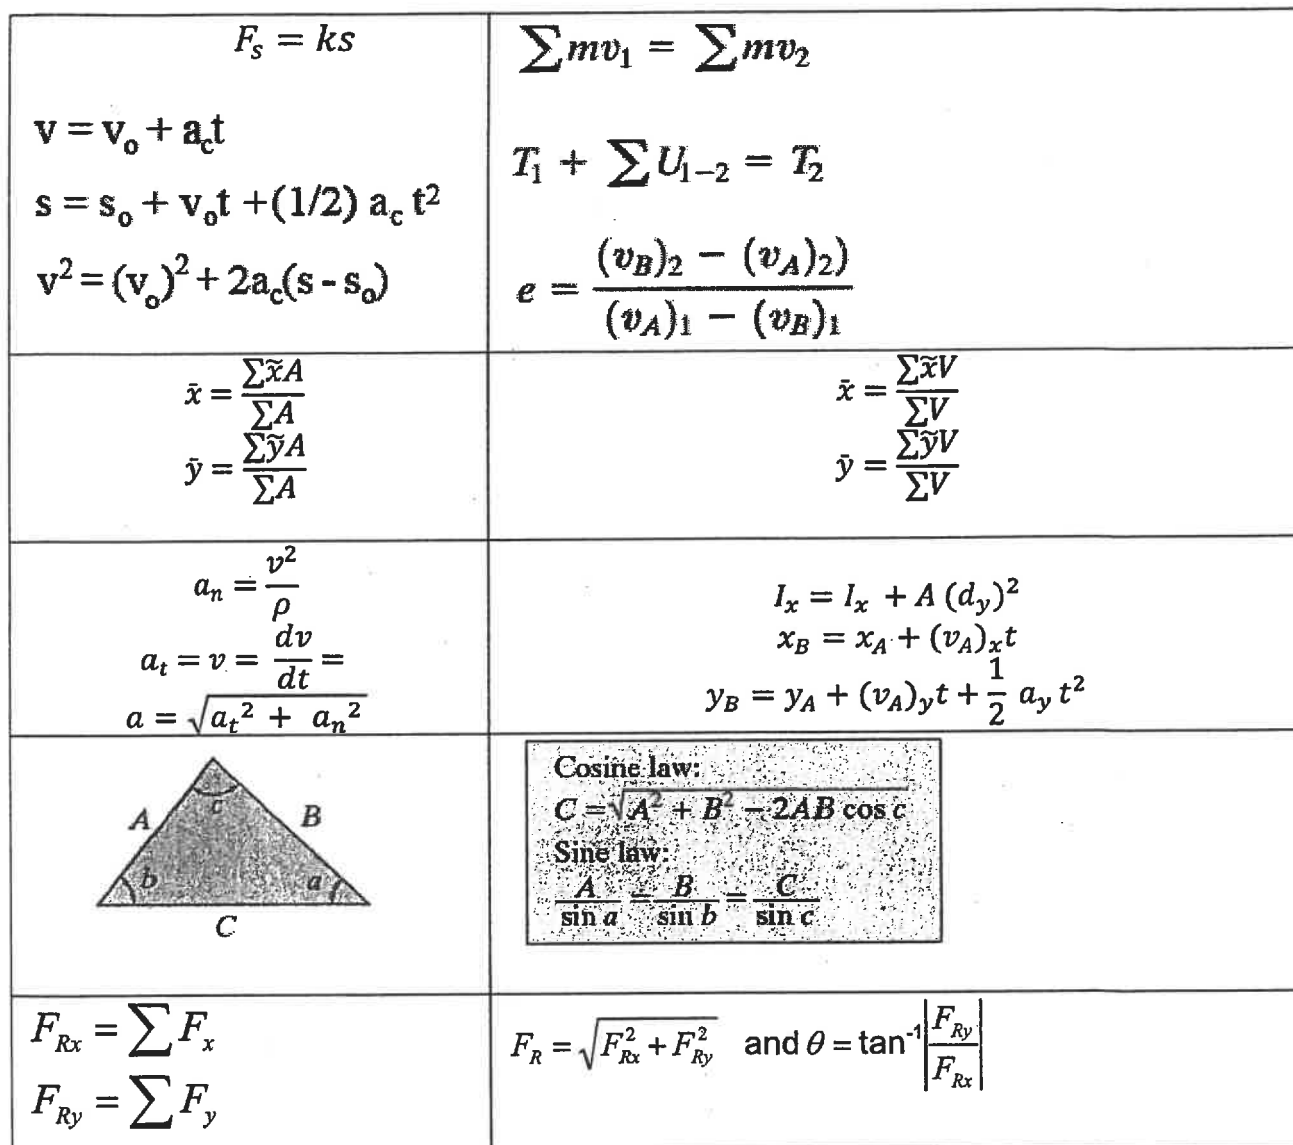 F_s = ks
v = v_o + a_c t
s = s_o + v_o t + (1/2) a_c t²
v² = (v_o)² + 2a_c(s - s_o)
∑mv₁ = ∑mv₂
T₁ + ∑U₁₋₂ = T₂
e = ((v_B)₂ − (v_A)₂)) / ((v_A)₁ − (v_B)₁)
x̄ = ∑x̃A / ∑A
ȳ = ∑ỹA / ∑A
x̄ = ∑x̃V / ∑V
ȳ = ∑ỹV / ∑V
a_n = v² / ρ
a_t = v = dv / dt =
a = √(a_t² + a_n²)
I_x = I_x + A (d_y)²
x_B = x_A + (v_A)_x t
y_B = y_A + (v_A)_y t + 1/2 a_y t²
c
A B
b a
C
Cosine law:
C = √(A² + B² − 2AB cos c)
Sine law:
A / sin a = B / sin b = C / sin c
F_Rx = ∑F_x
F_Ry = ∑F_y
F_R = √(F²_Rx + F²_Ry) and θ = tan⁻¹|F_Ry / F_Rx|